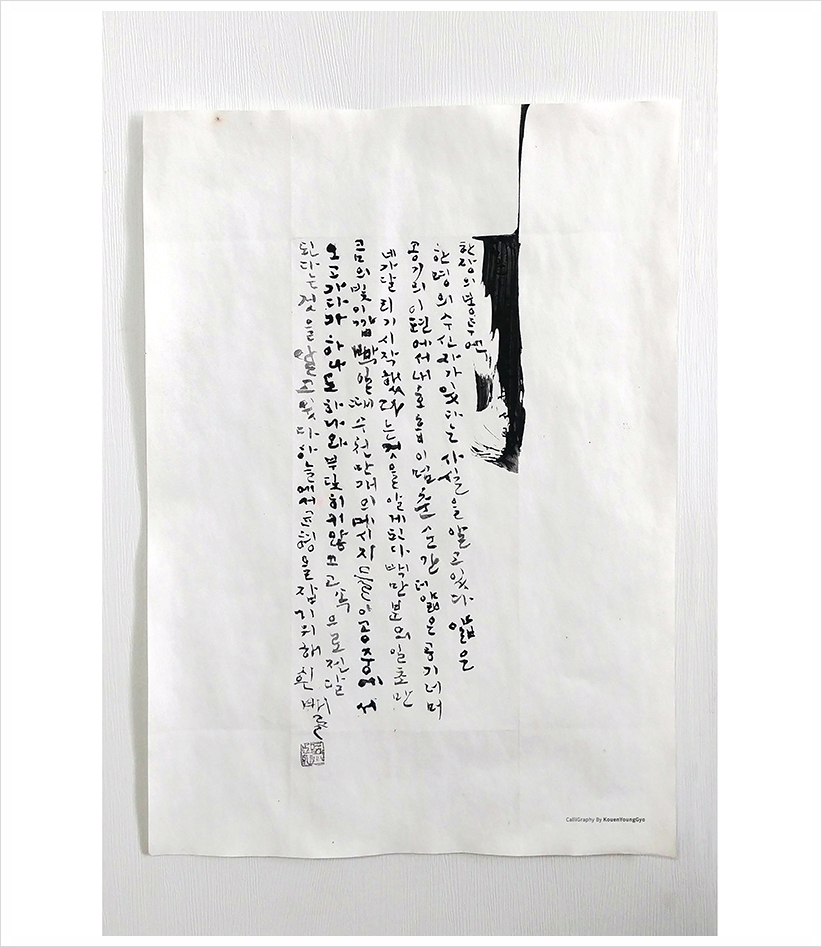 한장의 봉투엔
한명의 수신자가 있다는 사실을 알고 있다 얇은
공기의 이편에서 내 호흡이 멈춘 순간 더 얇은 공기 너머
네가 달리기 시작했다는 것을 알게 된다 백만분의 일초만
큼의 빛이 깜빡일때 수천만개의 메시지들은 공중에서
오고가다가 하나도 하나와 부딪히지 않으고 쪽으로 전달
된다는 것을 알고 있다 하늘에서 균형을 잡기위해 흰
CalliGraphy By KouenYoungGyo